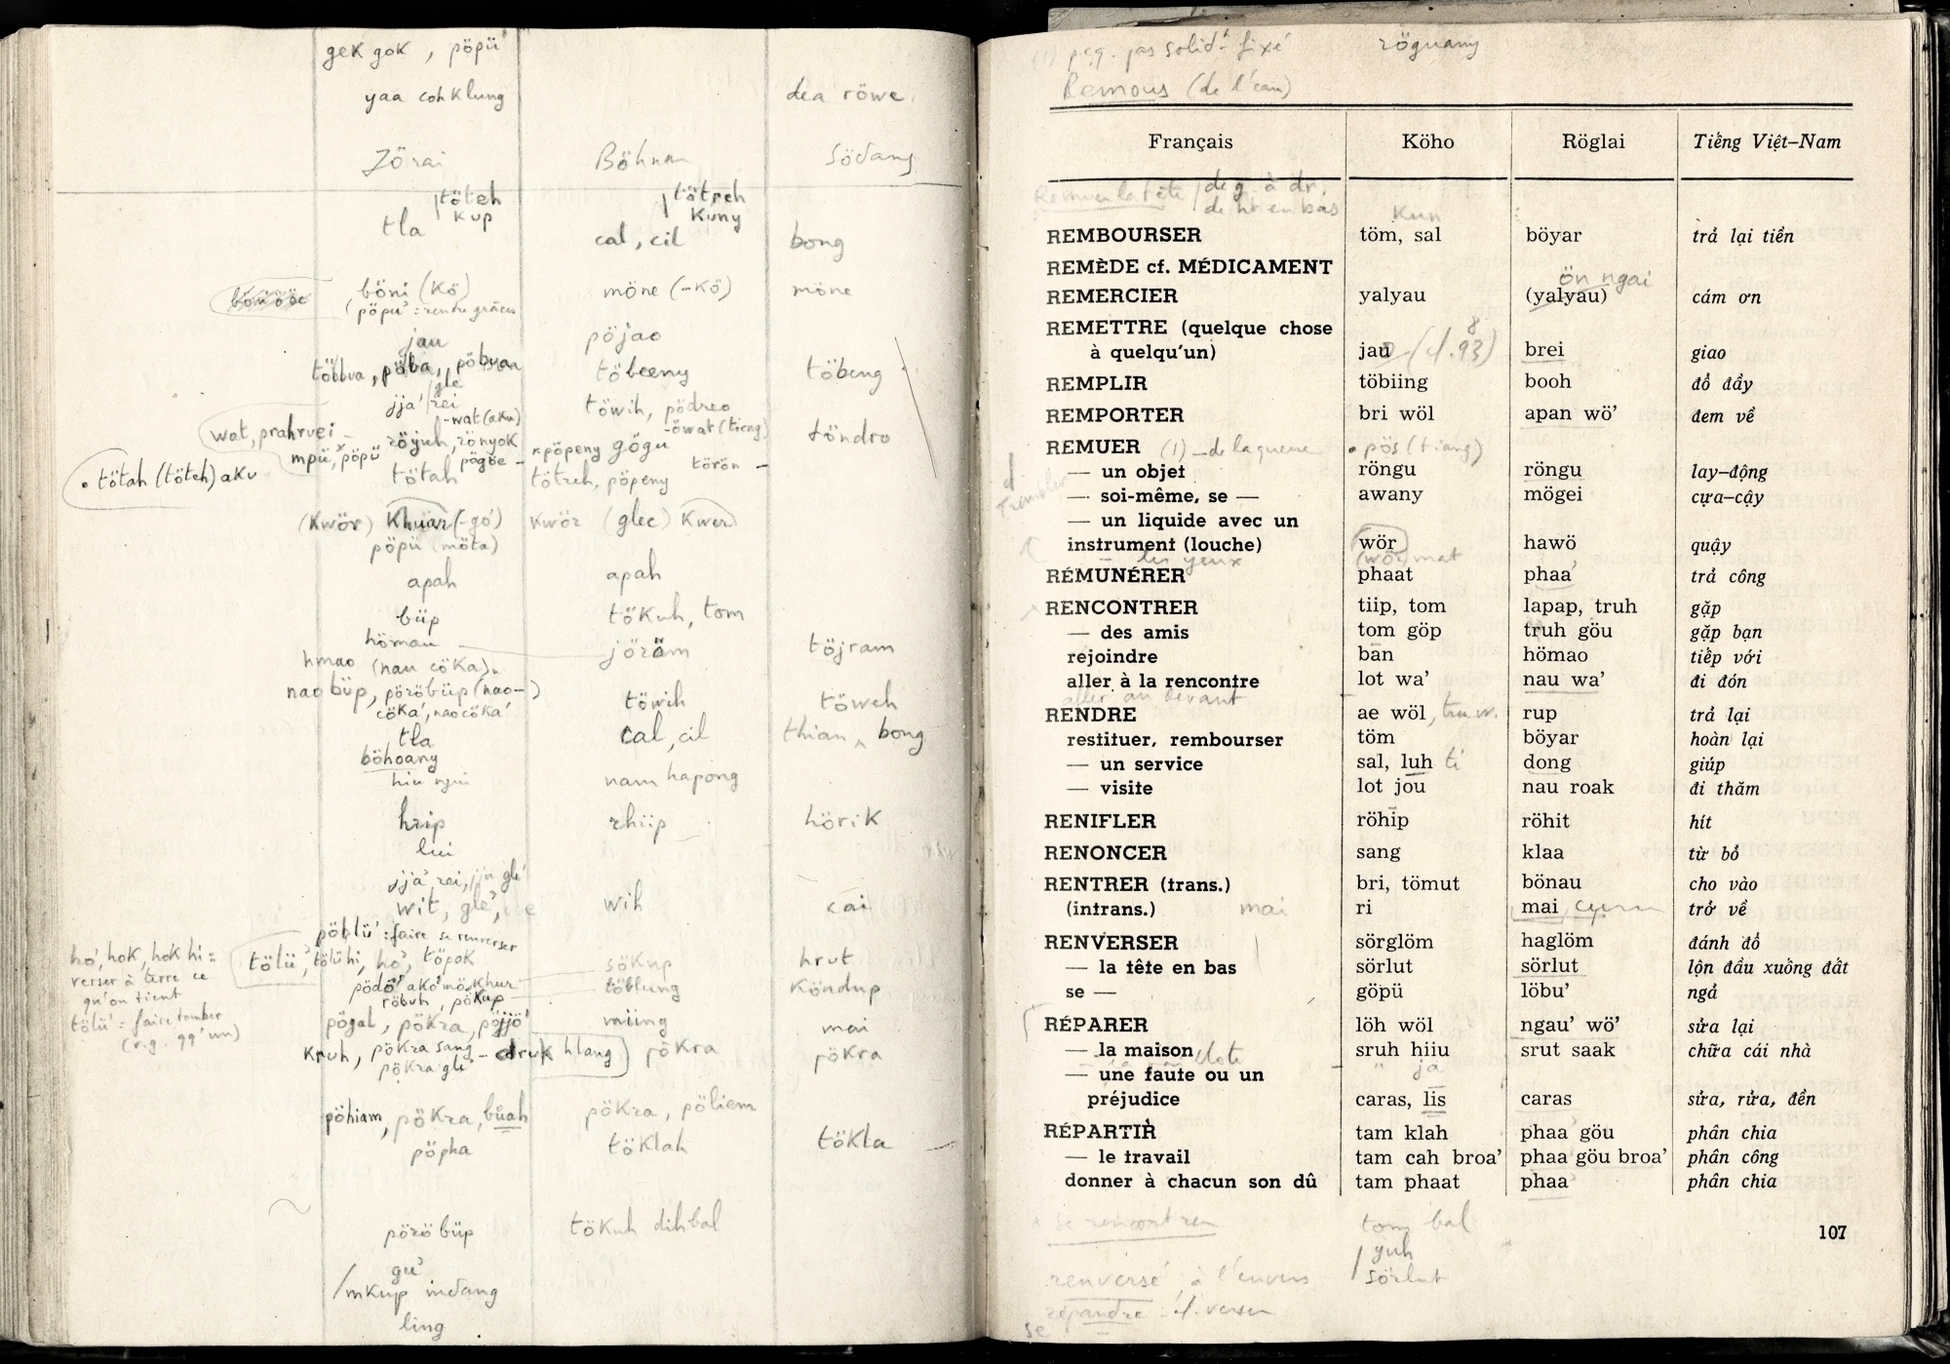 gek gok , pöpü'
yaa coh Klung dea röwe
Zörai Böhnar Södang
töteh tötreh
kup Kuny
tla cal, cil bong
böni (Kö) möne (-Kö) möne
(pöpü' : rendre grâces
jau pöjao
töbva, pöba, pöbyaa töbeeny töbeng
jja' rei töwih, pödreo
-wat (aku) -öwat (tieng)
wat, prahrvei röjuh, rönyok pöpeny gögu töndro
mpü, pöpü pögöe törön -
• tötah (töteh) aku tötah tötreh, pöpeny
(Kwör) Khuar (-gö) Kwör (glee) Kwer
pöpü (möta)
apah apah
büp töKuh, tom
höman jöräm töjram
hmao (nau cöKa)
nao büp, pöröbüp (nao-)
cöKa', nao cöKa' töwih töweh
tla cal, cil thian, bong
böhoang
hiu ngui nam hapong
hrip rhiip höriK
lui
jja' rei, jju glé
wit, glé, wih cai
pöblü' : faire se renverser
ho', hok, hok hi = tölü', tölühi, ho', töpok söKup hrut
verser à terre ce pödö' akö' mökhur töblung köndup
qu'on tient röbuh, pöKup
tölü' = faire tomber pögal, pöKra, pöjjö' miing mai
(v.g. qq'un)
Kruh, pöKra sang - druk hlang pöKra pöKra
pöKra glé
pöhiam, pöKra, buah pöKra, pöliem
töKlah töKla
pöpha
pörö büp töKuh dihbal
gu'
mKup indang
ling
(1) pas solidt fixé röguany
Remous (de l'eau)
Français Köho Röglai Tiếng Việt–Nam
Remuer la tête / de g. à dr.
de ht en bas Kun
REMBOURSER töm, sal böyar trả lại tiền
REMÈDE cf. MÉDICAMENT
ön ngai
REMERCIER yalyau (yalyau) cám ơn
REMETTRE (quelque chose
à quelqu'un) jau (cf. 93) brei giao
REMPLIR töbiing booh đổ đầy
REMPORTER bri wöl apan wö' đem về
REMUER (1) – de la queue • pös (tiang)
— un objet röngu röngu lay–động
— soi-même, se — awany mögei cựa–cậy
— un liquide avec un
instrument (louche) wör hawö quậy
les yeux (wör) mat
RÉMUNÉRER phaat phaa' trả công
RENCONTRER tiip, tom lapap, truh gặp
— des amis tom göp truh göu gặp bạn
rejoindre ban hömao tiếp với
aller à la rencontre lot wa' nau wa' đi đón
aller au devant
RENDRE ae wöl rup trả lại
restituer, rembourser töm böyar hoàn lại
— un service sal, luh ti dong giúp
— visite lot jou nau roak đi thăm
RENIFLER röhip röhit hít
RENONCER sang klaa từ bỏ
RENTRER (trans.) bri, tömut bönau cho vào
(intrans.) mai ri mai trở về
RENVERSER sörglöm haglöm đánh đổ
— la tête en bas sörlut sörlut lộn đầu xuống đất
se — göpü löbu' ngả
RÉPARER löh wöl ngau' wö' sửa lại
— la maison sruh hiiu srut saak chữa cái nhà
— une faute ou un " ja
préjudice caras, lis caras sửa, rửa, đền
RÉPARTIR tam klah phaa göu phân chia
— le travail tam cah broa' phaa göu broa' phân công
donner à chacun son dû tam phaat phaa' phân chia
se rencontrer tom bal
107
yuh
renversé, à l'envers sörlut
répandre : cf. verser
se